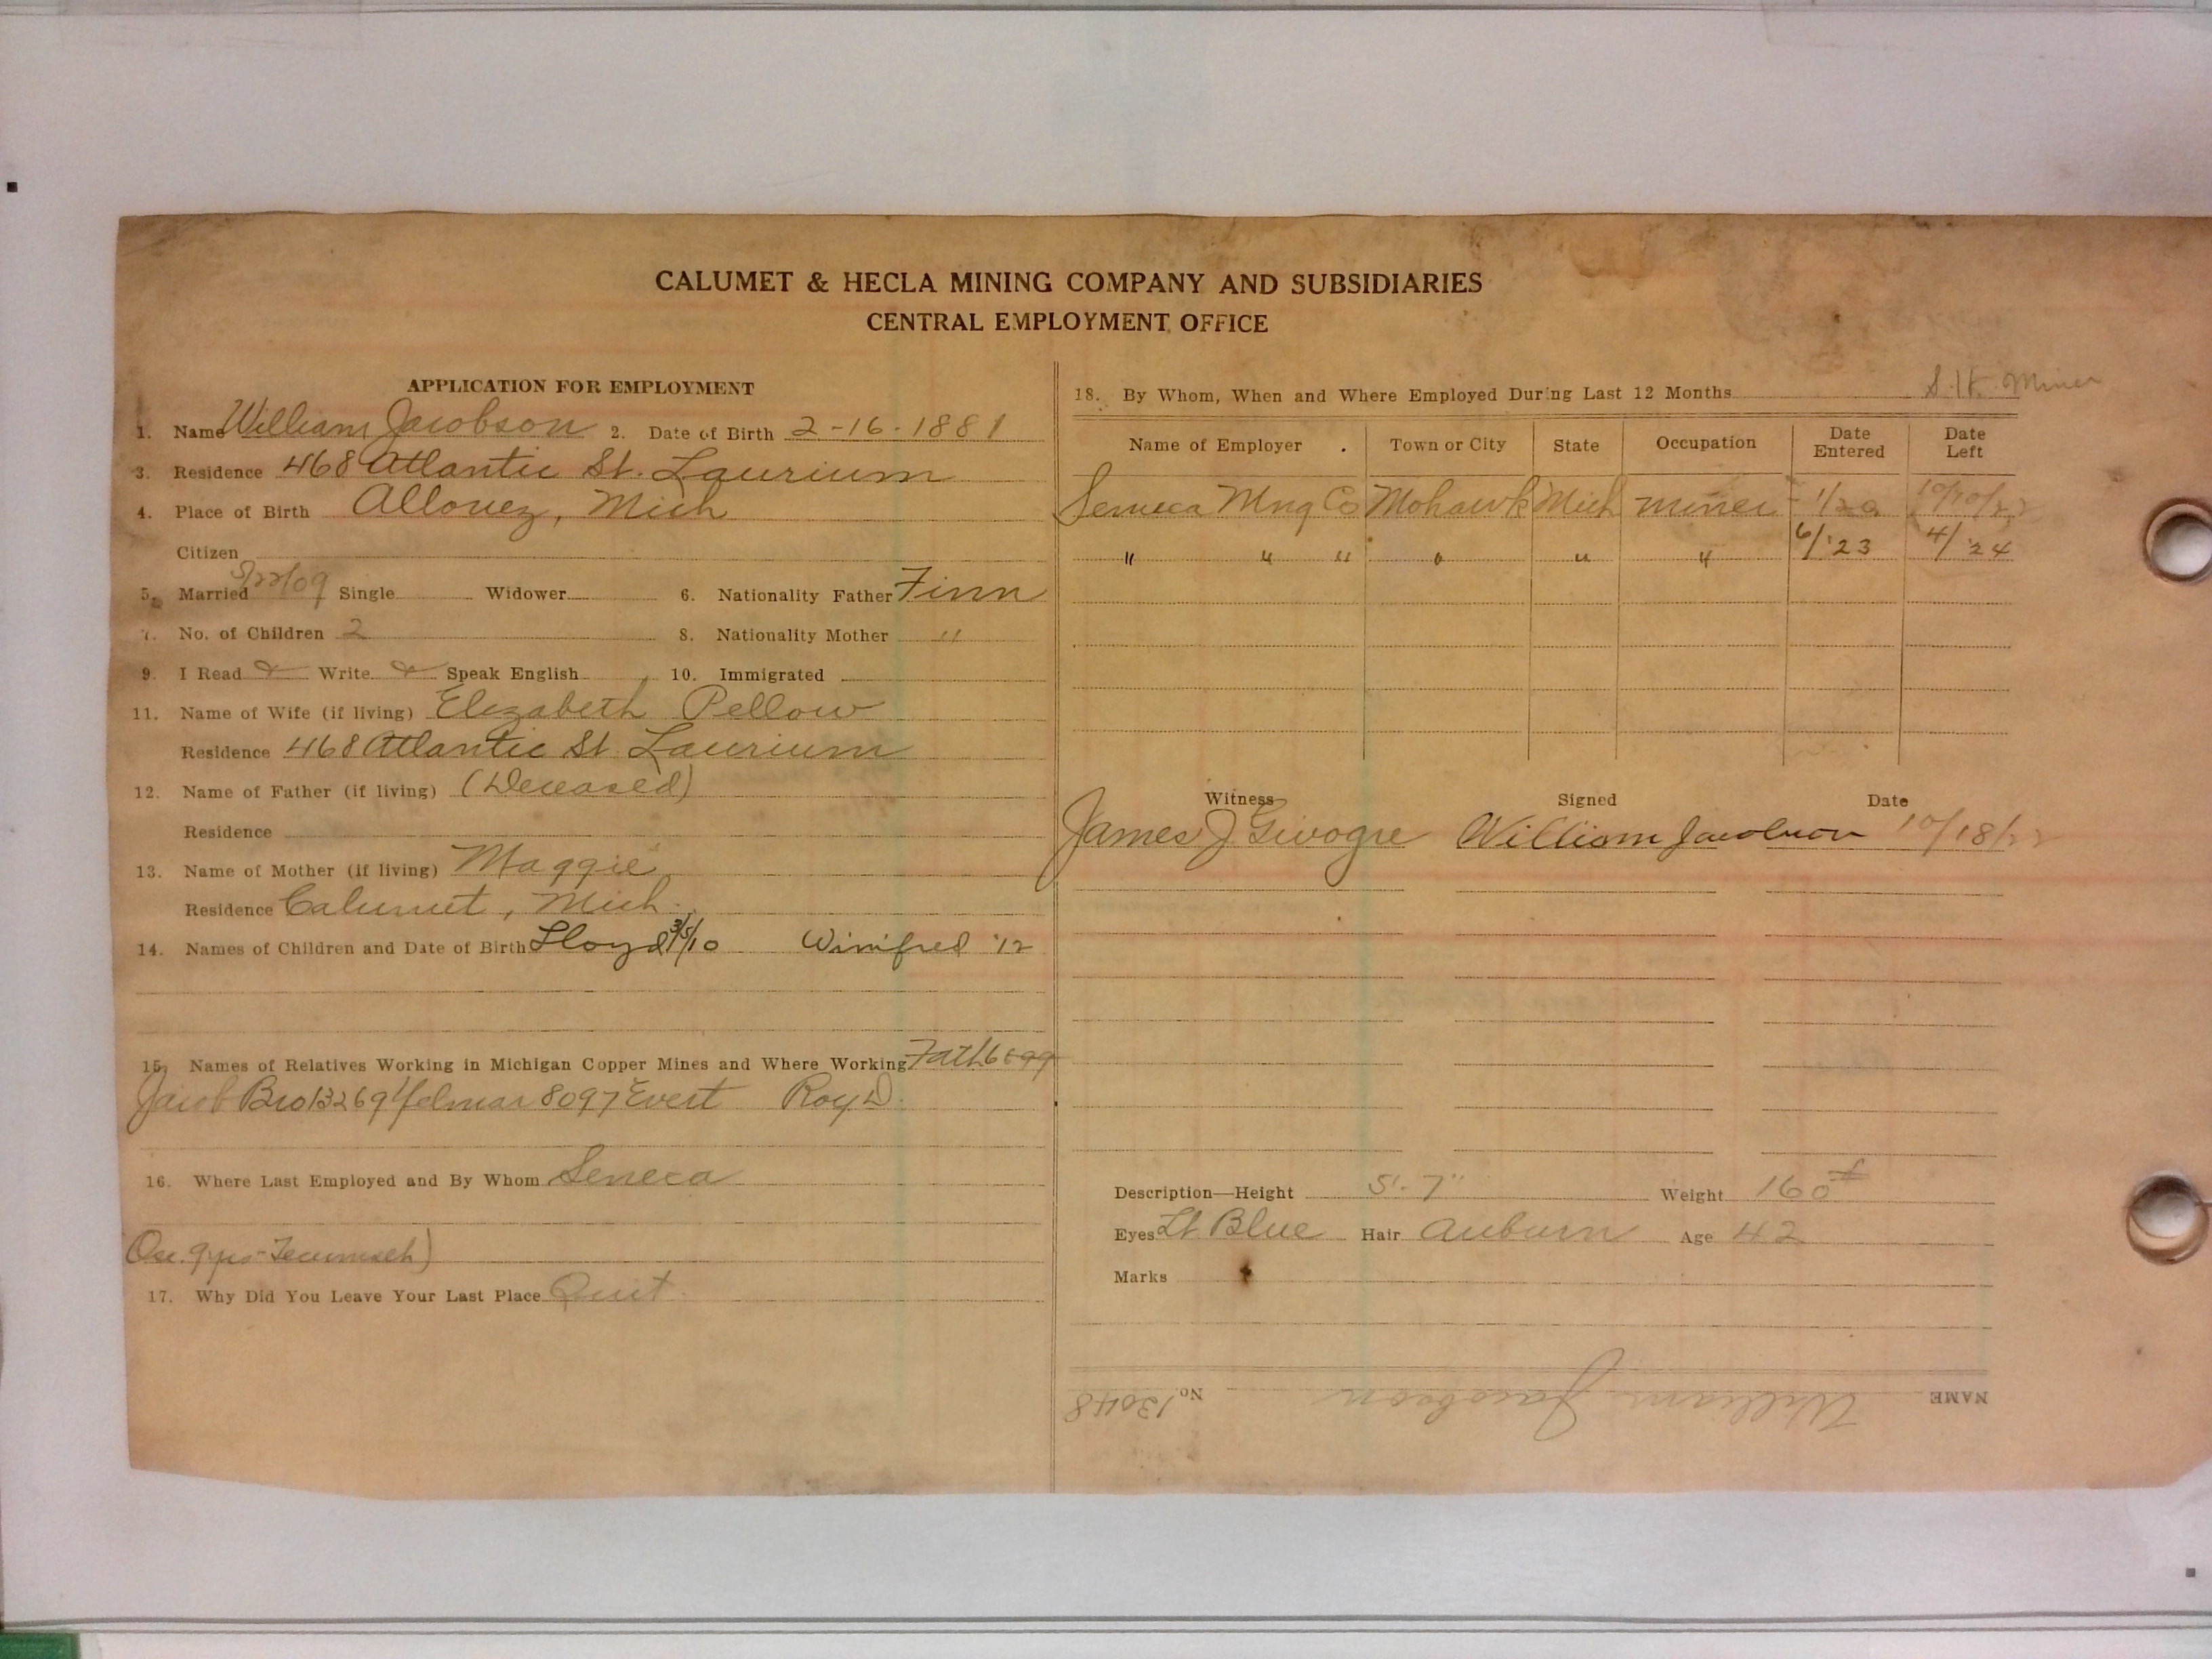 CALUMET & HECLA MINING COMPANY AND SUBSIDIARIES
CENTRAL EMPLOYMENT OFFICE
APPLICATION FOR EMPLOYMENT
1. Name William Jacobson 2. Date of Birth 2-16-1881
3. Residence 468 Atlantic St. Laurium
4. Place of Birth Allouez, Mich
Citizen
5. Married 5/22/09 Single Widower 6. Nationality Father Finn
7. No. of Children 2 8. Nationality Mother "
9. I Read & Write & Speak English 10. Immigrated
11. Name of Wife (if living) Elizabeth Pellow
Residence 468 Atlantic St. Laurium
12. Name of Father (if living) (Deceased)
Residence
13. Name of Mother (if living) Maggie
Residence Calumet, Mich.
14. Names of Children and Date of Birth Lloyd 3/5/10 Winifred '12
15. Names of Relatives Working in Michigan Copper Mines and Where Working
Jacob Bro 13269 8097 Evert Roy D.
16. Where Last Employed and By Whom Seneca
Tecumseh)
17. Why Did You Leave Your Last Place Quit
18. By Whom, When and Where Employed During Last 12 Months Miner
Name of Employer Town or City State Occupation Date Entered Date Left
Seneca Mng Co Mohawk Mich Miner 10/10/22
" " " " " " 6/'23 4/'24
Witness Signed Date
James J. William Jacobson 10/18/22
Description—Height 5'-7" Weight 160#
Eyes Lt Blue Hair Auburn Age 42
Marks
NAME William Jacobson No. 13048